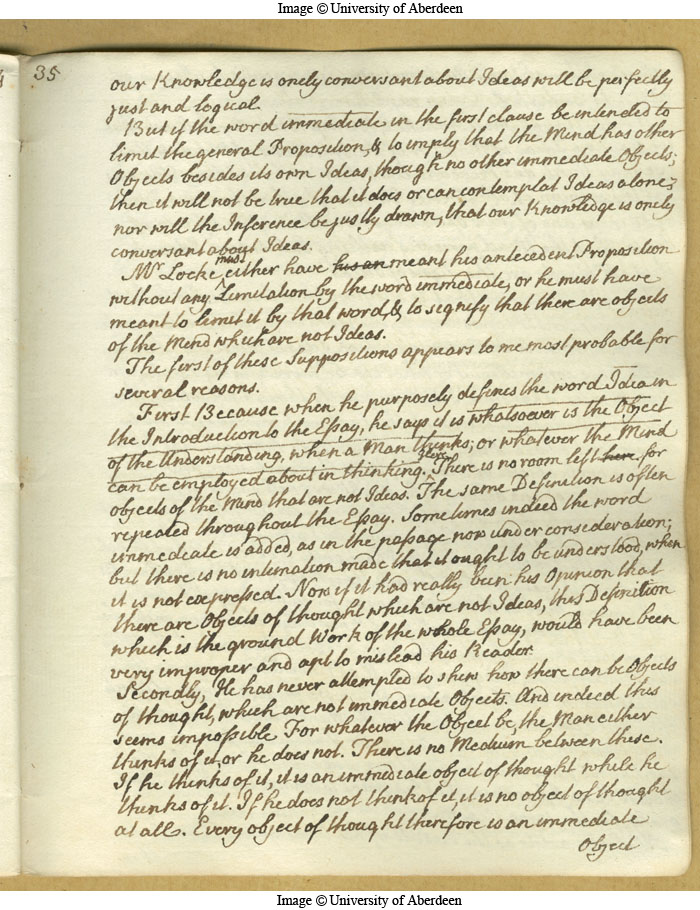 Image © University of Aberdeen
35
our Knowledge is onely conversant about Ideas will be perfectly
just and logical.
But if the word immediate in the first clause be intended to
limit the general Proposition, & to imply that the Mind has other
Objects besides its own Ideas, though no other immediate Objects;
then it will not be true that it does or can contemplat Ideas alone;
nor will the Inference be justly drawn, that our Knowledge is onely
conversant about Ideas.
must
Mr Locke either have his an meant his antecedent Proposition
without any Limitation by the word immediate, or he must have
meant to limit it by that word, & to signify that there are objects
of the Mind which are not Ideas.
The first of these Suppositions appears to me most probable for
several reasons.
First Because when he purposely defines the word Idea in
the Introduction to the Essay, he says it is whatsoever is the Object
of the Understanding, when a Man thinks; or whatever the Mind
can be employed about in thinking. There is no room left here for
objects of the Mind that are not Ideas. The same Definition is often
repeated throughout the Essay. Sometimes indeed the word
immediate is added, as in the passage now under consideration;
but there is no intimation made that it ought to be understood, when
it is not expressed. Now if it had really been his Opinion that
there are Objects of thought which are not Ideas, this Definition
which is the ground Work of the whole Essay, would have been
very improper and apt to mislead his Reader.
Secondly, He has never attempted to shew how there can be Objects
of thought, which are not immediate Objects. And indeed this
seems impossible For whatever the Object be, the Man either
thinks of it, or he does not. There is no Medium between these.
If he thinks of it, it is an immediate object of thought while he
thinks of it. If he does not think of it, it is no object of thought
at all. Every object of thought therefore is an immediate
Object
Image © University of Aberdeen